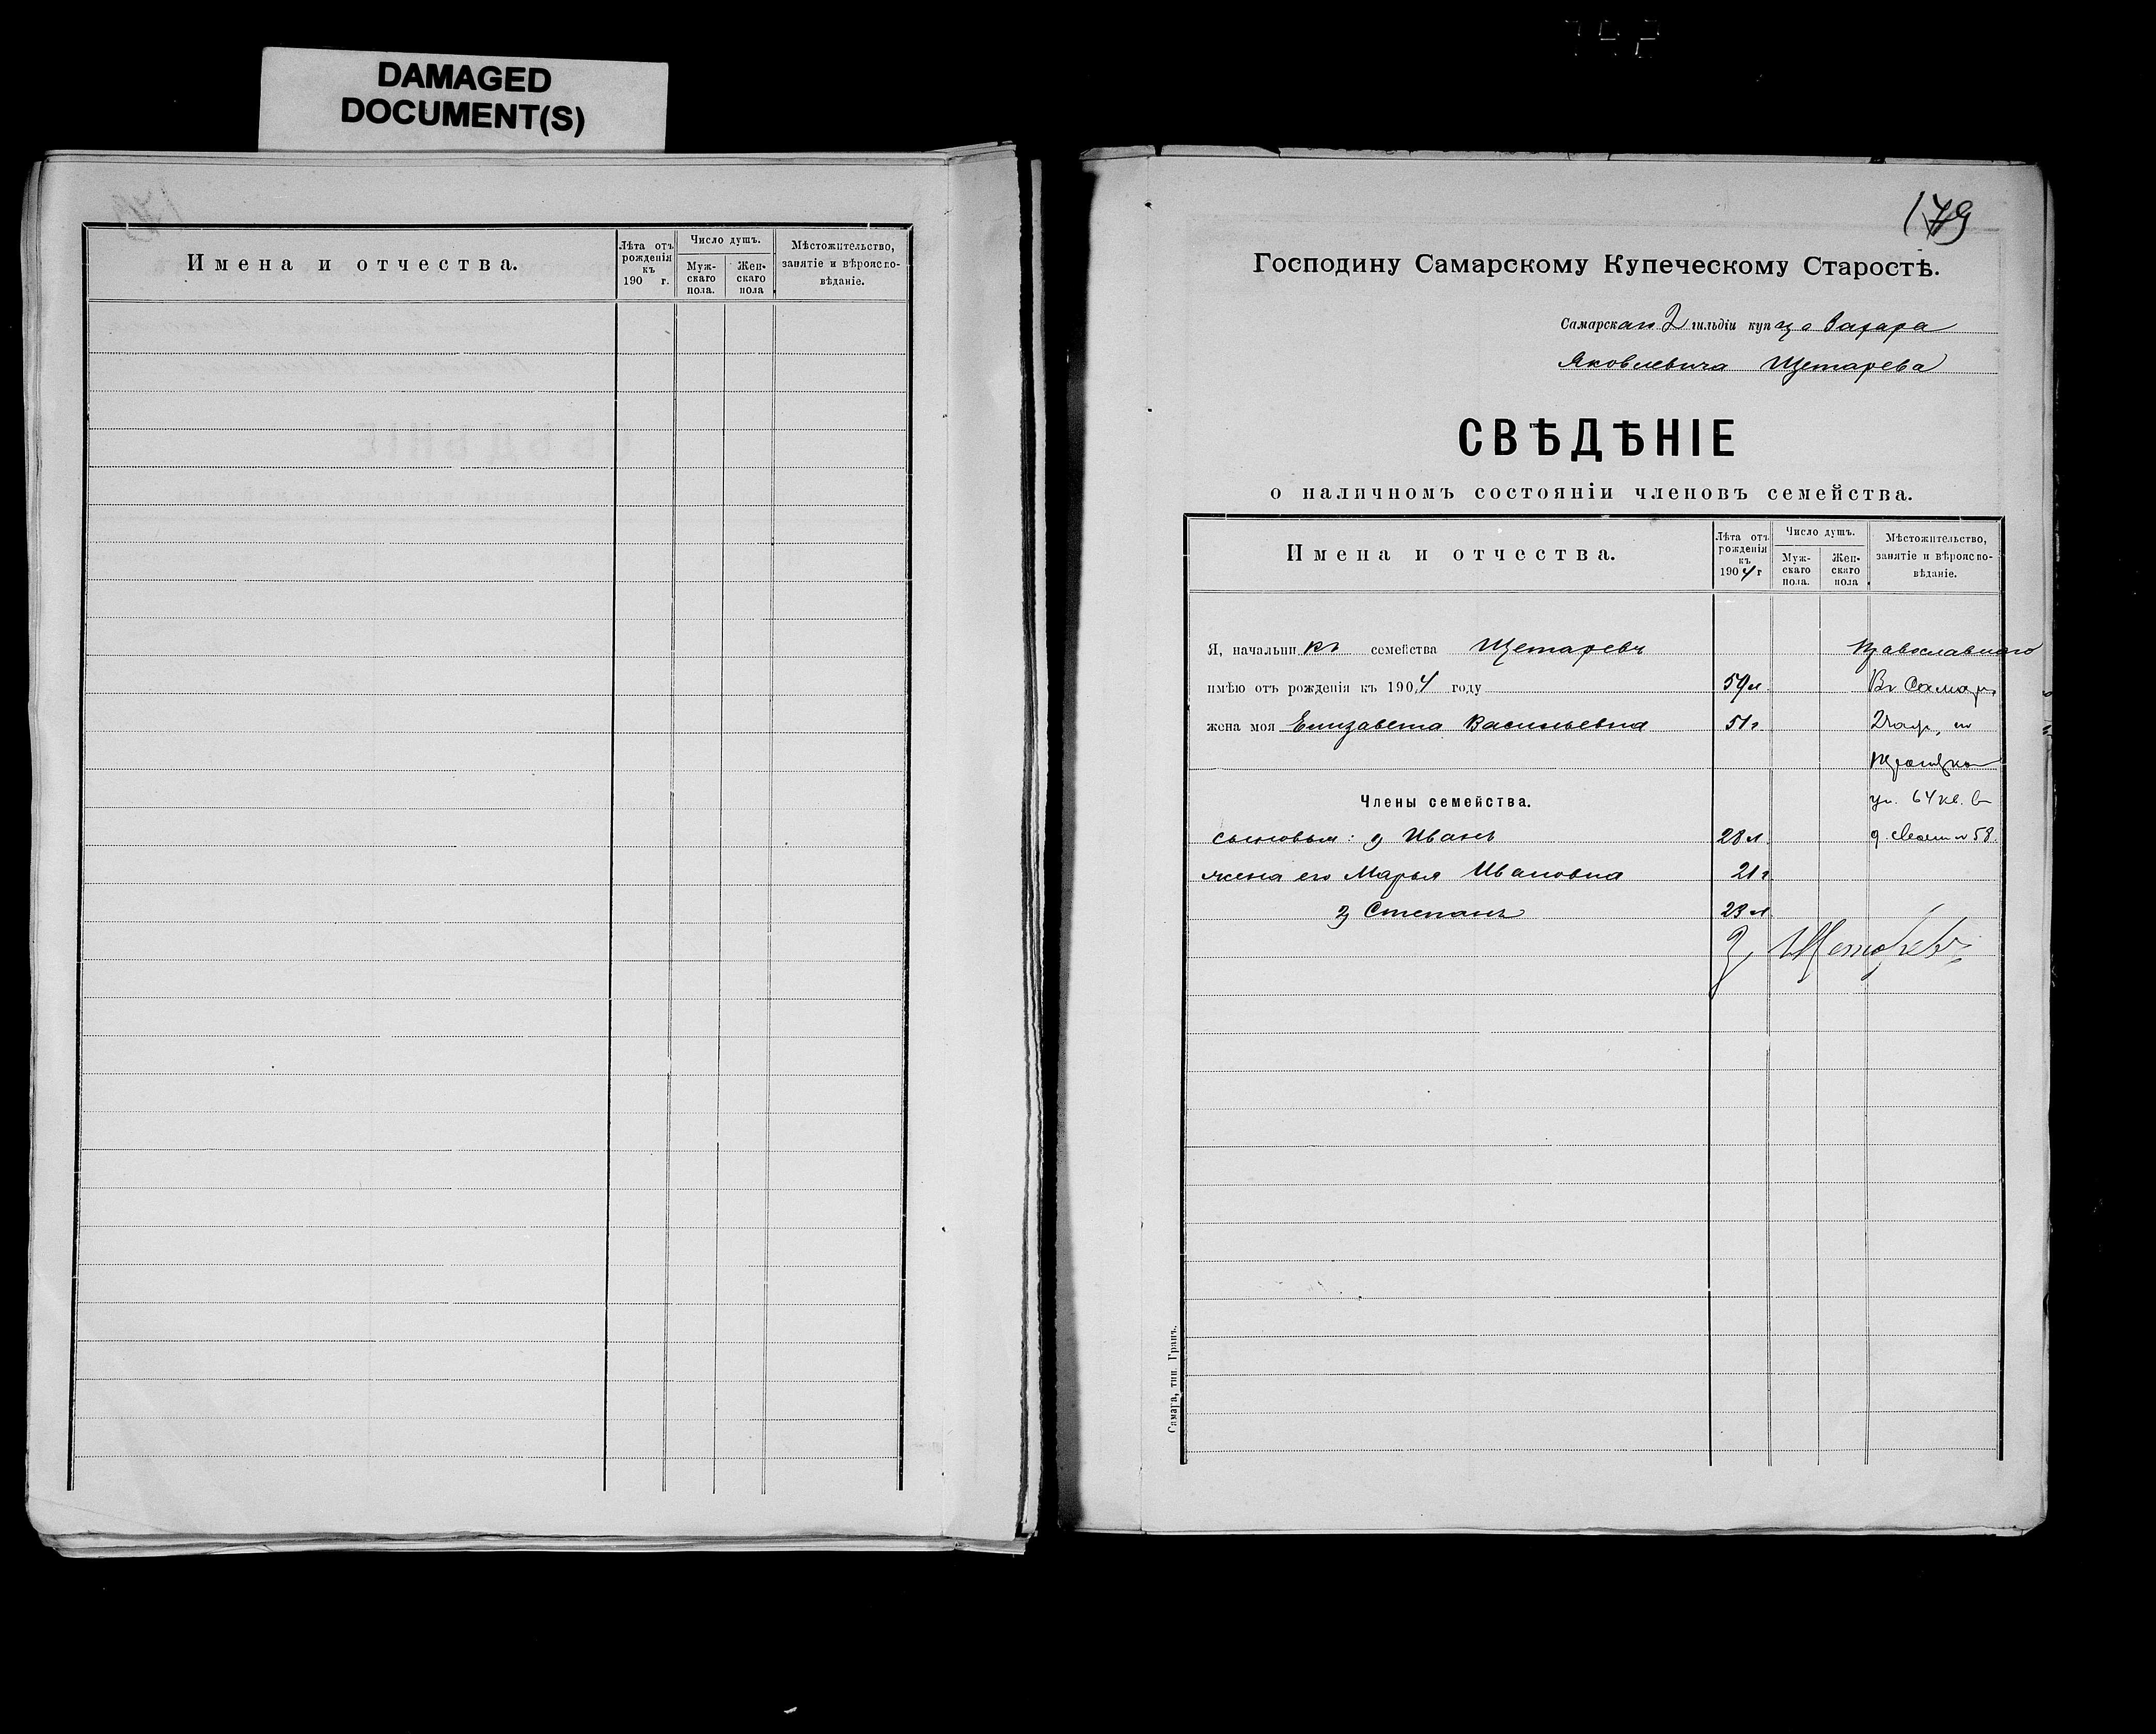 DAMAGED
DOCUMENT(S)
Имена и отчества.
Лѣта отъ рожденія къ 190 г.
Число душъ.
Мужскаго пола.
Женскаго пола
Мѣстожительство, занятіе и вѣроисповѣданіе.
179
Господину Самарскому Купеческому Старостѣ.
Самарскаго 2 гильдіи купца Захара
Яковлевича Щетарева
СВѢДѢНІЕ
о наличномъ состояніи членовъ семейства.
Имена и отчества.
Лѣта отъ рожденія къ 1904 г
Число душъ.
Мужскаго пола.
Женскаго пола
Мѣстожительство, занятіе и вѣроисповѣданіе.
Я, начальникъ семейства Щетаревъ Православнаго
имѣю отъ рожденія къ 1904 году 59 л. Въ Самар.
жена моя Елизавета Васильевна 51 г 2 част, по
Троицкой
Члены семейства. ул. 64 кв. въ
сыновья: 1) Иванъ 28 л. д. № 58.
жена его Марья Ивановна 21 г
2) Степанъ 23 л
З. Щетаревъ
Самара, тип. Гранъ.